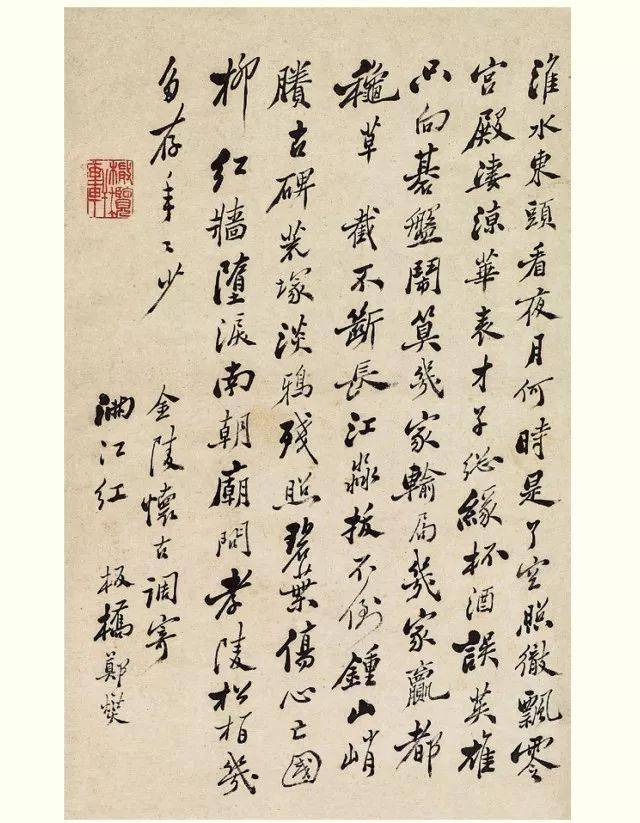 淮水東頭看夜月何時是了空照徹飄零
宮殿淒涼華表才子總緣杯酒誤英雄
只向碁盤鬧算幾家輸局幾家贏都
穐草 截不斷長江淼拔不倒鍾山峭
賸古碑荒塚淡鴉殘照碧葉傷心亡國
柳紅牆墮淚南朝廟問孝陵松柏幾
多存年々少
金陵懷古調寄
滿江紅 板橋鄭燮